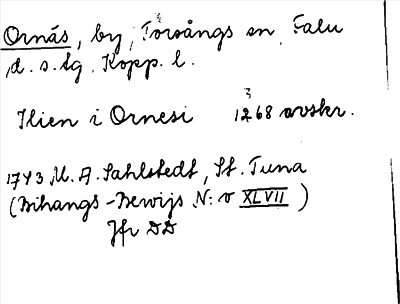 Ornäs, by, Torsångs sn, Falu
d. s. tg. Kopp. l.
Ilien i Ornesi 1268 avskr.
3
1743 M. A. Sahlstedt, St. Tuna
(Bihangs-Bewijs N:o XLVII)
Jfr DD